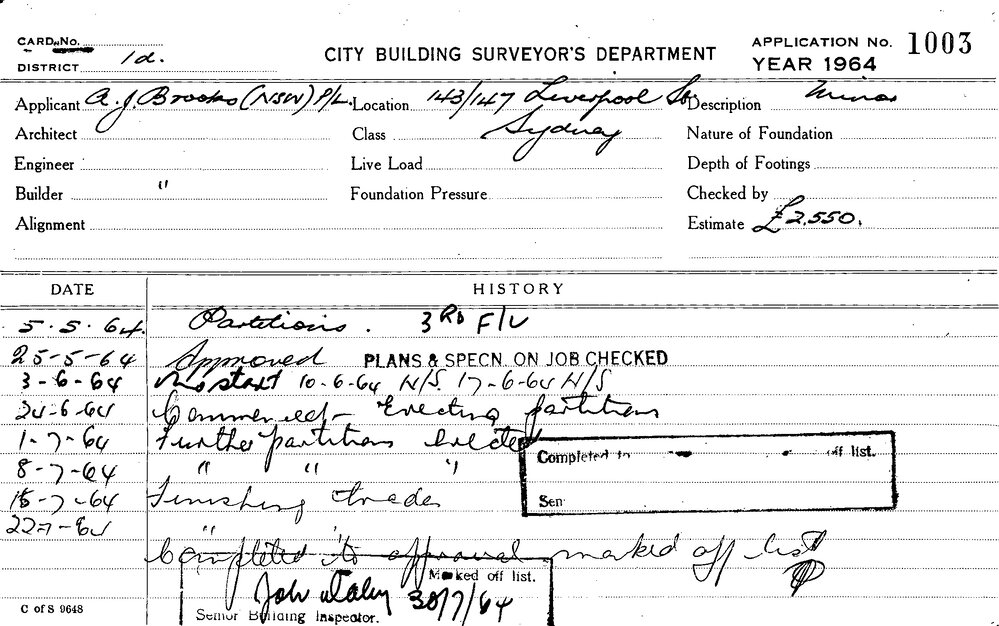 CARD No.
DISTRICT 1d.
CITY BUILDING SURVEYOR'S DEPARTMENT
APPLICATION No. 1003
YEAR 1964
Applicant A. J. Brooks (NSW) P/L. Location 143/147 Liverpool St Description Minor
Architect Class Sydney Nature of Foundation
Engineer Live Load Depth of Footings
Builder " Foundation Pressure Checked by
Alignment Estimate £2,550.
DATE HISTORY
5.5.64. Partitions. 3RD F/L
25-5-64 Approved PLANS & SPECN. ON JOB CHECKED
3-6-64 No start 10-6-64 N/S. 17-6-64 N/S
24-6-64 Commenced - Erecting partitions
1-7-64 Further partitions Erected
8-7-64 " " "
Completed to off list.
15-7-64 Finishing trades
Sen
22-7-64 "
Completed to approval marked off list
Marked off list.
John 30/7/64
Senior Building Inspector.
C of S 9648